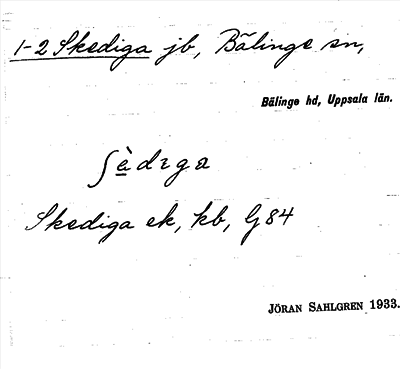 1-2 Skediga jb, Bälinge sn,
Bälinge hd, Uppsala län.
ʃè̱dıga
Skediga ek, kb, G84
JÖRAN SAHLGREN 1933.